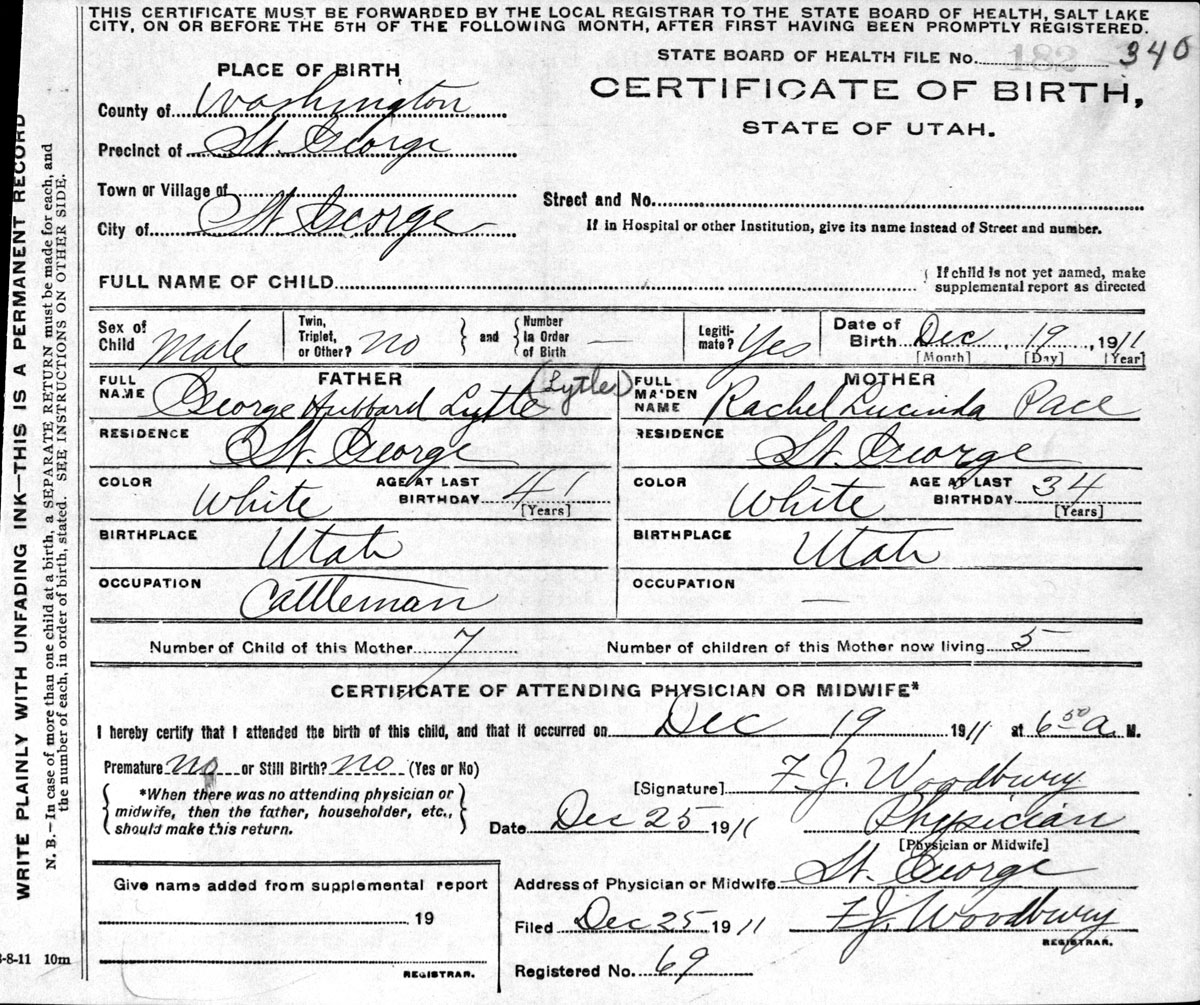 THIS CERTIFICATE MUST BE FORWARDED BY THE LOCAL REGISTRAR TO THE STATE BOARD OF HEALTH, SALT LAKE
CITY, ON OR BEFORE THE 5TH OF THE FOLLOWING MONTH, AFTER FIRST HAVING BEEN PROMPTLY REGISTERED.
STATE BOARD OF HEALTH FILE No. 182 340
PLACE OF BIRTH,
CERTIFICATE OF BIRTH,
STATE OF UTAH.
County of Washington
Precinct of St. George
Town or Village of
City of St George
Street and No.
If in Hospital or other Institution, give its name instead of Street and number.
FULL NAME OF CHILD
If child is not yet named, make
supplemental report as directed
Sex of Child Male
Twin, Triplet, or Other? No
and Number in Order of Birth —
Legiti-mate? Yes
Date of Birth Dec 19, 1911
[Month] [Day] [Year]
FATHER
FULL NAME George Hubbard Lytle (Lytle)
RESIDENCE St. George
COLOR White AGE AT LAST BIRTHDAY 41
[Years]
BIRTHPLACE Utah
OCCUPATION Cattleman
MOTHER
FULL MAIDEN NAME Rachel Lucinda Pace
RESIDENCE St. George
COLOR White AGE AT LAST BIRTHDAY 34
[Years]
BIRTHPLACE Utah
OCCUPATION —
Number of Child of this Mother 7 Number of children of this Mother now living 5
CERTIFICATE OF ATTENDING PHYSICIAN OR MIDWIFE*
I hereby certify that I attended the birth of this child, and that it occurred on Dec 19 1911 at 6 50 a. M.
Premature no or Still Birth? no (Yes or No)
*When there was no attending physician or
midwife, then the father, householder, etc.,
should make this return.
[Signature] F. J. Woodbury
Date Dec 25 1911 Physician
[Physician or Midwife]
Address of Physician or Midwife St. George
Give name added from supplemental report
19
REGISTRAR.
Filed Dec 25 1911 F. J. Woodbury
REGISTRAR.
Registered No. 69
-8-11 10m
WRITE PLAINLY WITH UNFADING INK—THIS IS A PERMANENT RECORD
N. B.—In case of more than one child at a birth, a SEPARATE RETURN must be made for each, and
the number of each, in order of birth, stated. SEE INSTRUCTIONS ON OTHER SIDE.